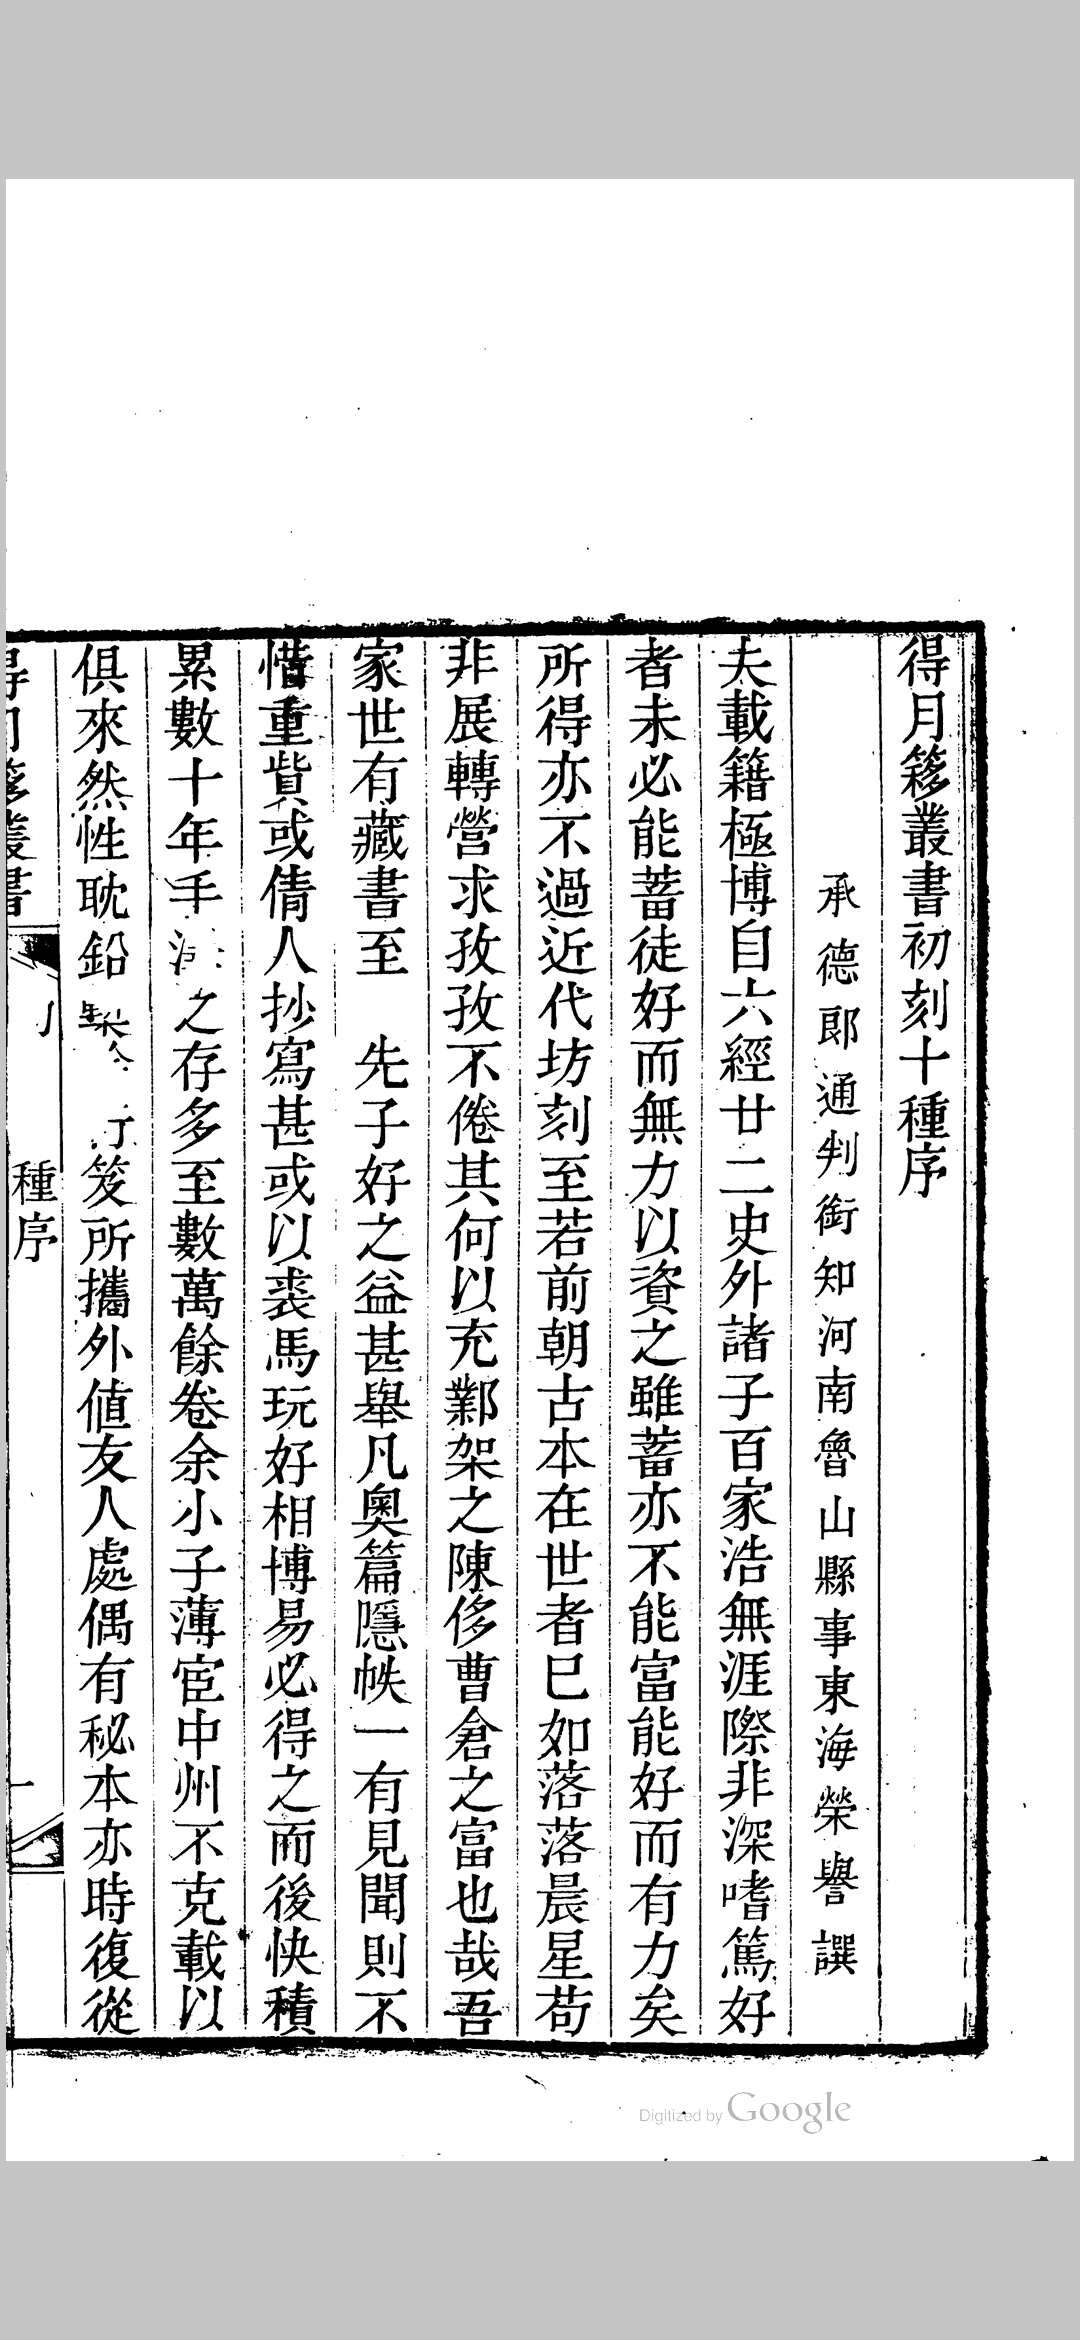 得月簃叢書初刻十種序
承德郎通判銜知河南魯山縣事東海榮譽譔
夫載籍極博自六經廿二史外諸子百家浩無涯際非深嗜篤好
者未必能蓄徒好而無力以資之雖蓄亦不能富能好而有力矣
所得亦不過近代坊刻至若前朝古本在世者巳如落落晨星苟
非展轉營求孜孜不倦其何以充鄴架之陳侈曹倉之富也哉吾
家世有藏書至 先子好之益甚舉凡奧篇隱帙一有見聞則不
惜重貲或倩人抄寫甚或以裘馬玩好相博易必得之而後快積
累數十年手 之存多至數萬餘卷余小子薄宦中州不克載以
俱來然性耽鉛 笈所攜外値友人處偶有秘本亦時復從
得月簃叢書 種序
Digitized by Google